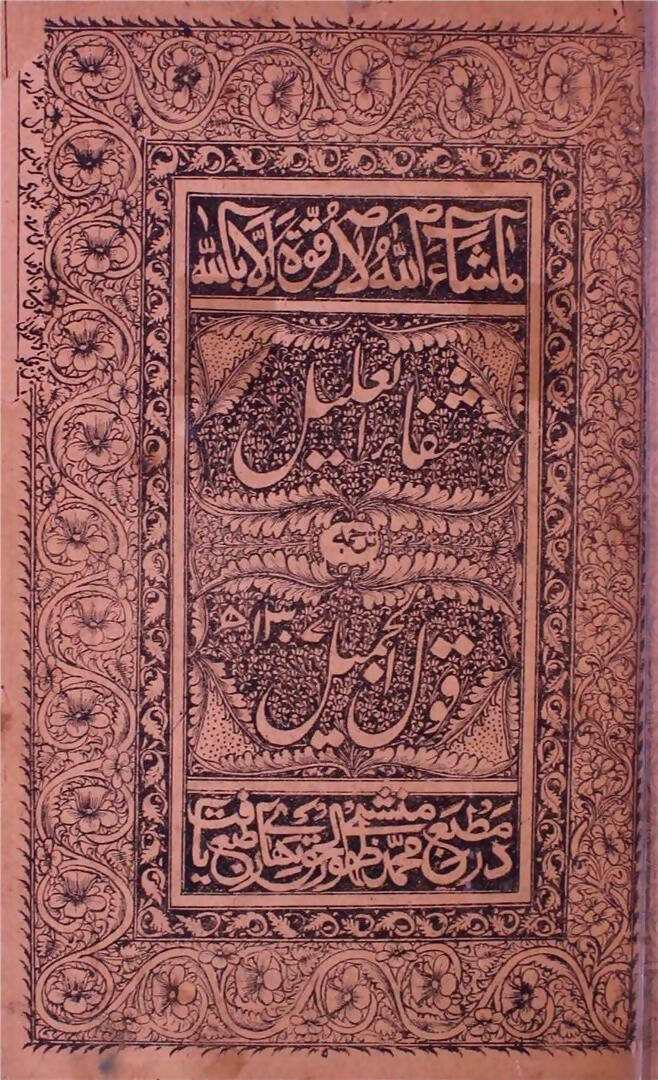 ما شاء الله لا قوة الا بالله
شفاء العلیل
ترجمہ
قول الجمیل
در مطبع منشی محمد ظہور الحق طبع یافت